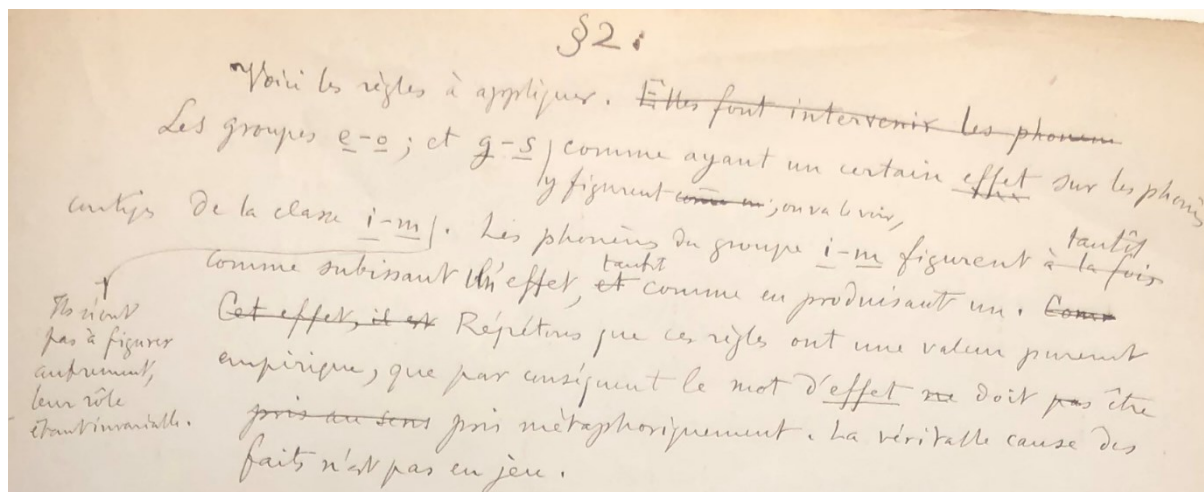 §2.
Voici les règles à appliquer. Elles font intervenir les phonem
Les groupes e-o; et g-s) comme ayant un certain effet sur les phonès
y figurent comme un; on va le voir,
contigs de la classe i-m). Les phonèms du groupe i-m figurent à la fois
tantôt
comme subissant un effet, et comme en produisant un. Comr
tantôt
Cet effet, il est Répétons que ces règles ont une valeur purement
empirique, que par conséquent le mot d'effet ne doit pas être
pris au sens pris métaphoriquement. La véritable cause des
faits n'est pas en jeu.
Ils n'ont
pas à figurer
autrement,
leur rôle
étant invariable.